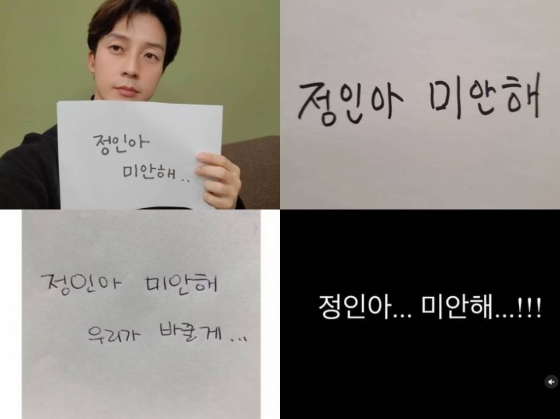 정인아
미안해..
정인아 미안해
정인아 미안해
우리가 바꿀게...
정인아... 미안해...!!!